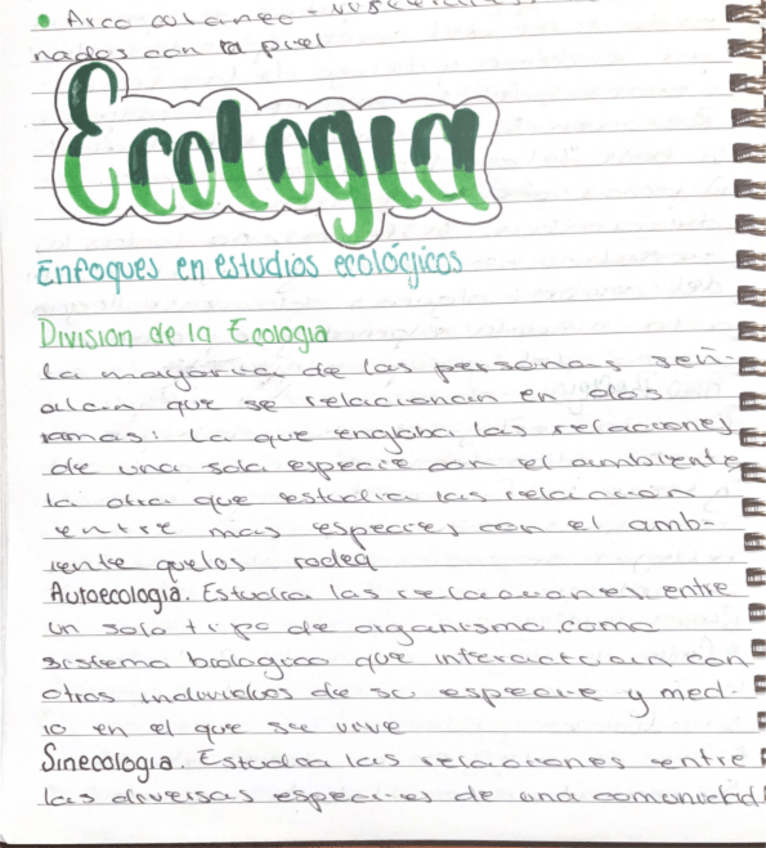 • Arco colaneo -
nados con la piel
Ecología
Enfoques en estudios ecológicos
División de la Ecologia
la mayoria de las personas señ-
alan que se relacionan en dos
ramas: La que engloba las relaciones
de una sola especie con el ambiente
la otra que estudia las relación
entre mas especies con el amb-
iente quelos rodea
Autoecologia. Estudia las relaciones entre
un solo tipo de organismo como
sistema biologico que interactuan con
otros individuos de su especie y med-
io en el que se vive
Sinecologia. Estudia las relaciones entre
las diversas especies de una comunidad